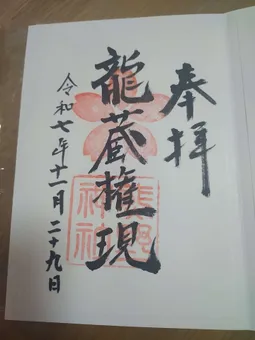 奉拝
龍蔵権現
熊野神社
令和七年十一月二十九日